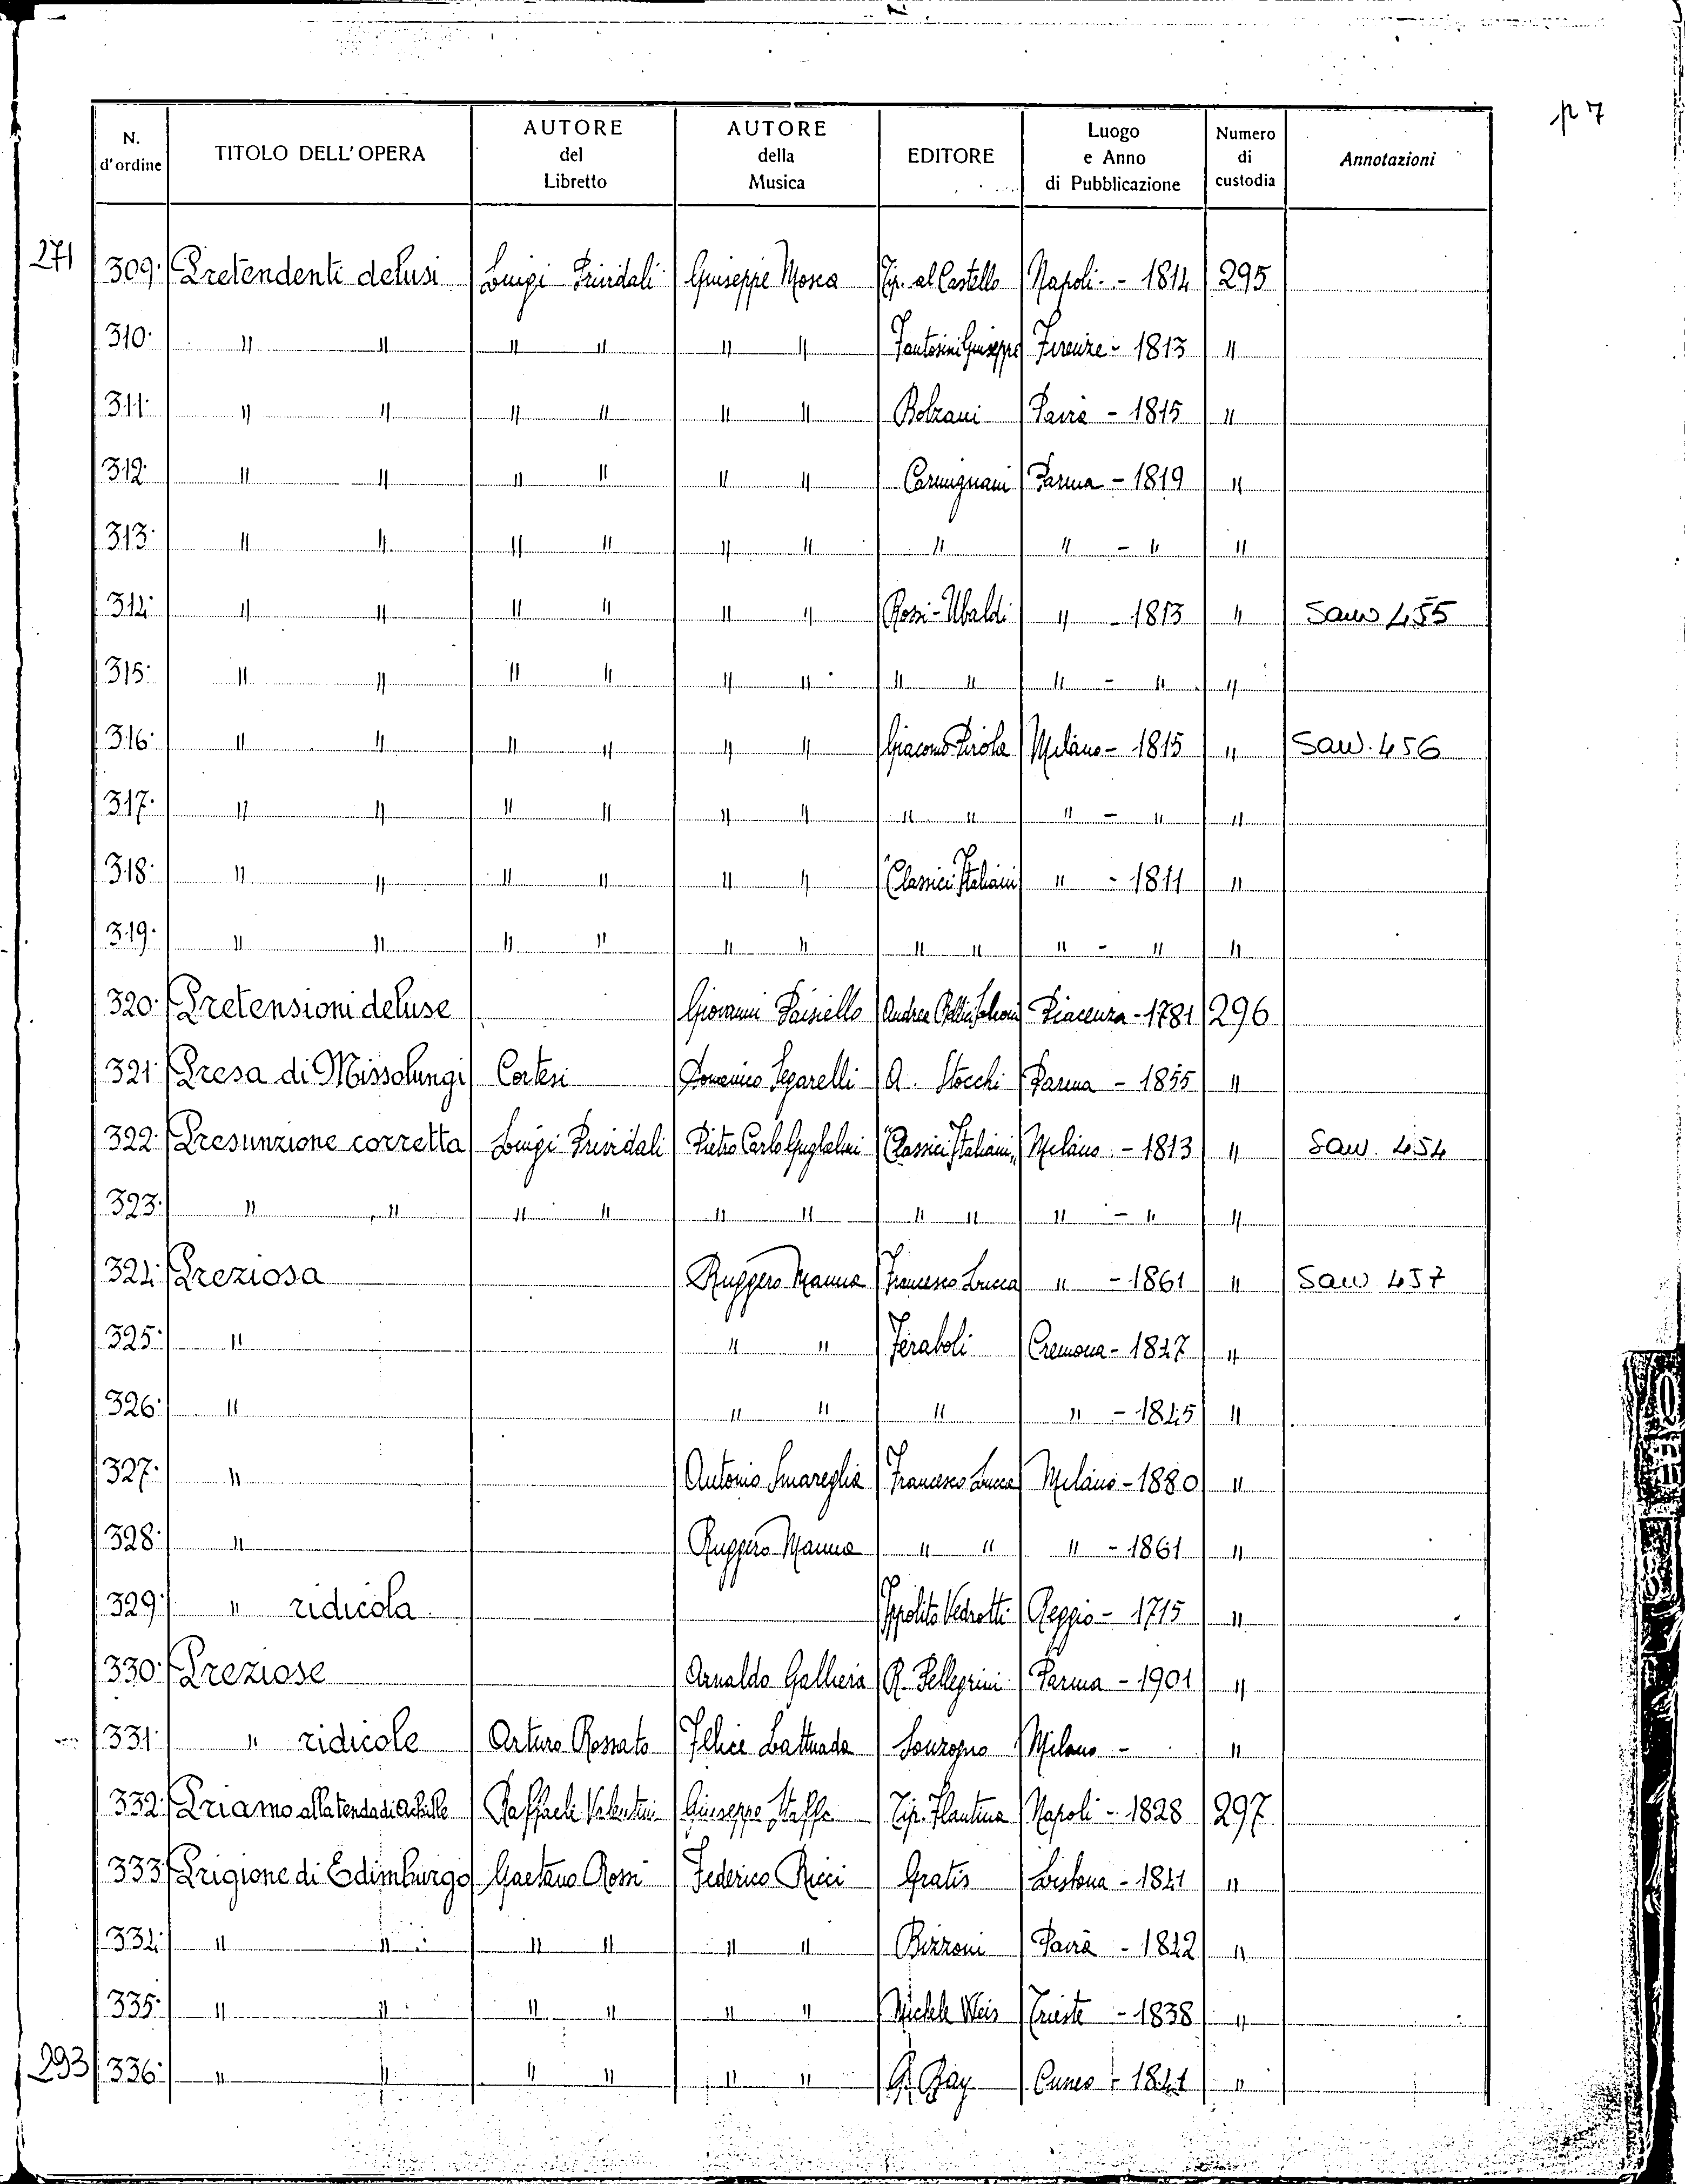 p 7
N. d'ordine TITOLO DELL'OPERA AUTORE del Libretto AUTORE della Musica EDITORE Luogo e Anno di Pubblicazione Numero di custodia Annotazioni
271 309. Pretendenti delusi Luigi Prividali Giuseppe Mosca Tip. al Castello Napoli - 1814 295
310. " " " " " " Fantosini Giuseppe Firenze - 1813 "
311. " " " " " " Bolzani Pavia - 1815 "
312. " " " " " " Carmignani Parma - 1819 "
313. " " " " " " " " - " "
314. " " " " " " Rossi-Ubaldi " - 1813 " Saw 455
315. " " " " " " " " " - " "
316. " " " " " " Giacomo Pirola Milano - 1815 " Saw. 456
317. " " " " " " " " " - " "
318. " " " " " " "Classici Italiani " - 1811 "
319. " " " " " " " " " - " "
320. Pretensioni deluse Giovanni Paisiello Andrea Piacenza - 1781 296
321. Presa di Missolungi Cortesi Domenico Segarelli A. Stocchi Parma - 1855 "
322. Presunzione corretta Luigi Prividali Pietro Carlo Guglielmi "Classici Italiani" Milano - 1813 " Saw. 454
323. " " " " " " " " " - " "
324. Preziosa Ruggero Manna Francesco Lucca " - 1861 " Saw 457
325. " " " Feraboli Cremona - 1847 "
326. " " " " " - 1845 "
327. " Antonio Smareglia Francesco Lucca Milano - 1880 "
328. " Ruggero Manna " " " - 1861 "
329. " ridicola Ippolito Vedrotti Reggio - 1715 "
330. Preziose Arnaldo Galliera R. Pellegrini Parma - 1901 "
331. " ridicole Arturo Rossato Felice Lattuada Sonzogno Milano - "
332. Priamo alla tenda di Achille Raffaele Valentini Giuseppe Staffa Tip. Flautina Napoli - 1828 297
333. Prigione di Edimburgo Gaetano Rossi Federico Ricci Gratis Lisbona - 1841 "
334. " " " " " " Bizzoni Pavia - 1842 "
335. " " " " " " Michele Weis Trieste - 1838 "
293 336. " " " " " " Cuneo - 1841 "